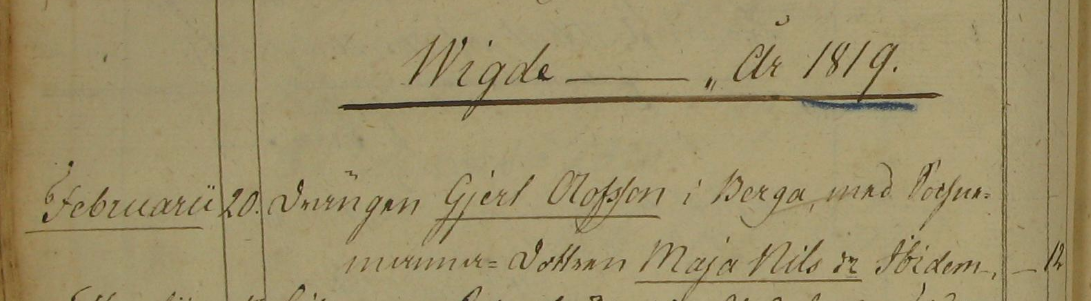 Wigde — „ År 1819.
Februarii 20. Drängen Gjerl Olofsson i Berga, med Sochne=
manna= Dottren Maja Nils dr Ibidem, — 12